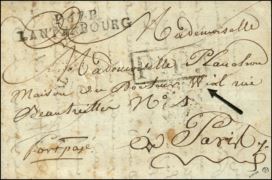 P.67.P.
LANTERBOURG
Mademoiselle
Mademoiselle Planchon
Maison du Docteur Wial rue
Beautreillis N° 1
Port payé
à Paris